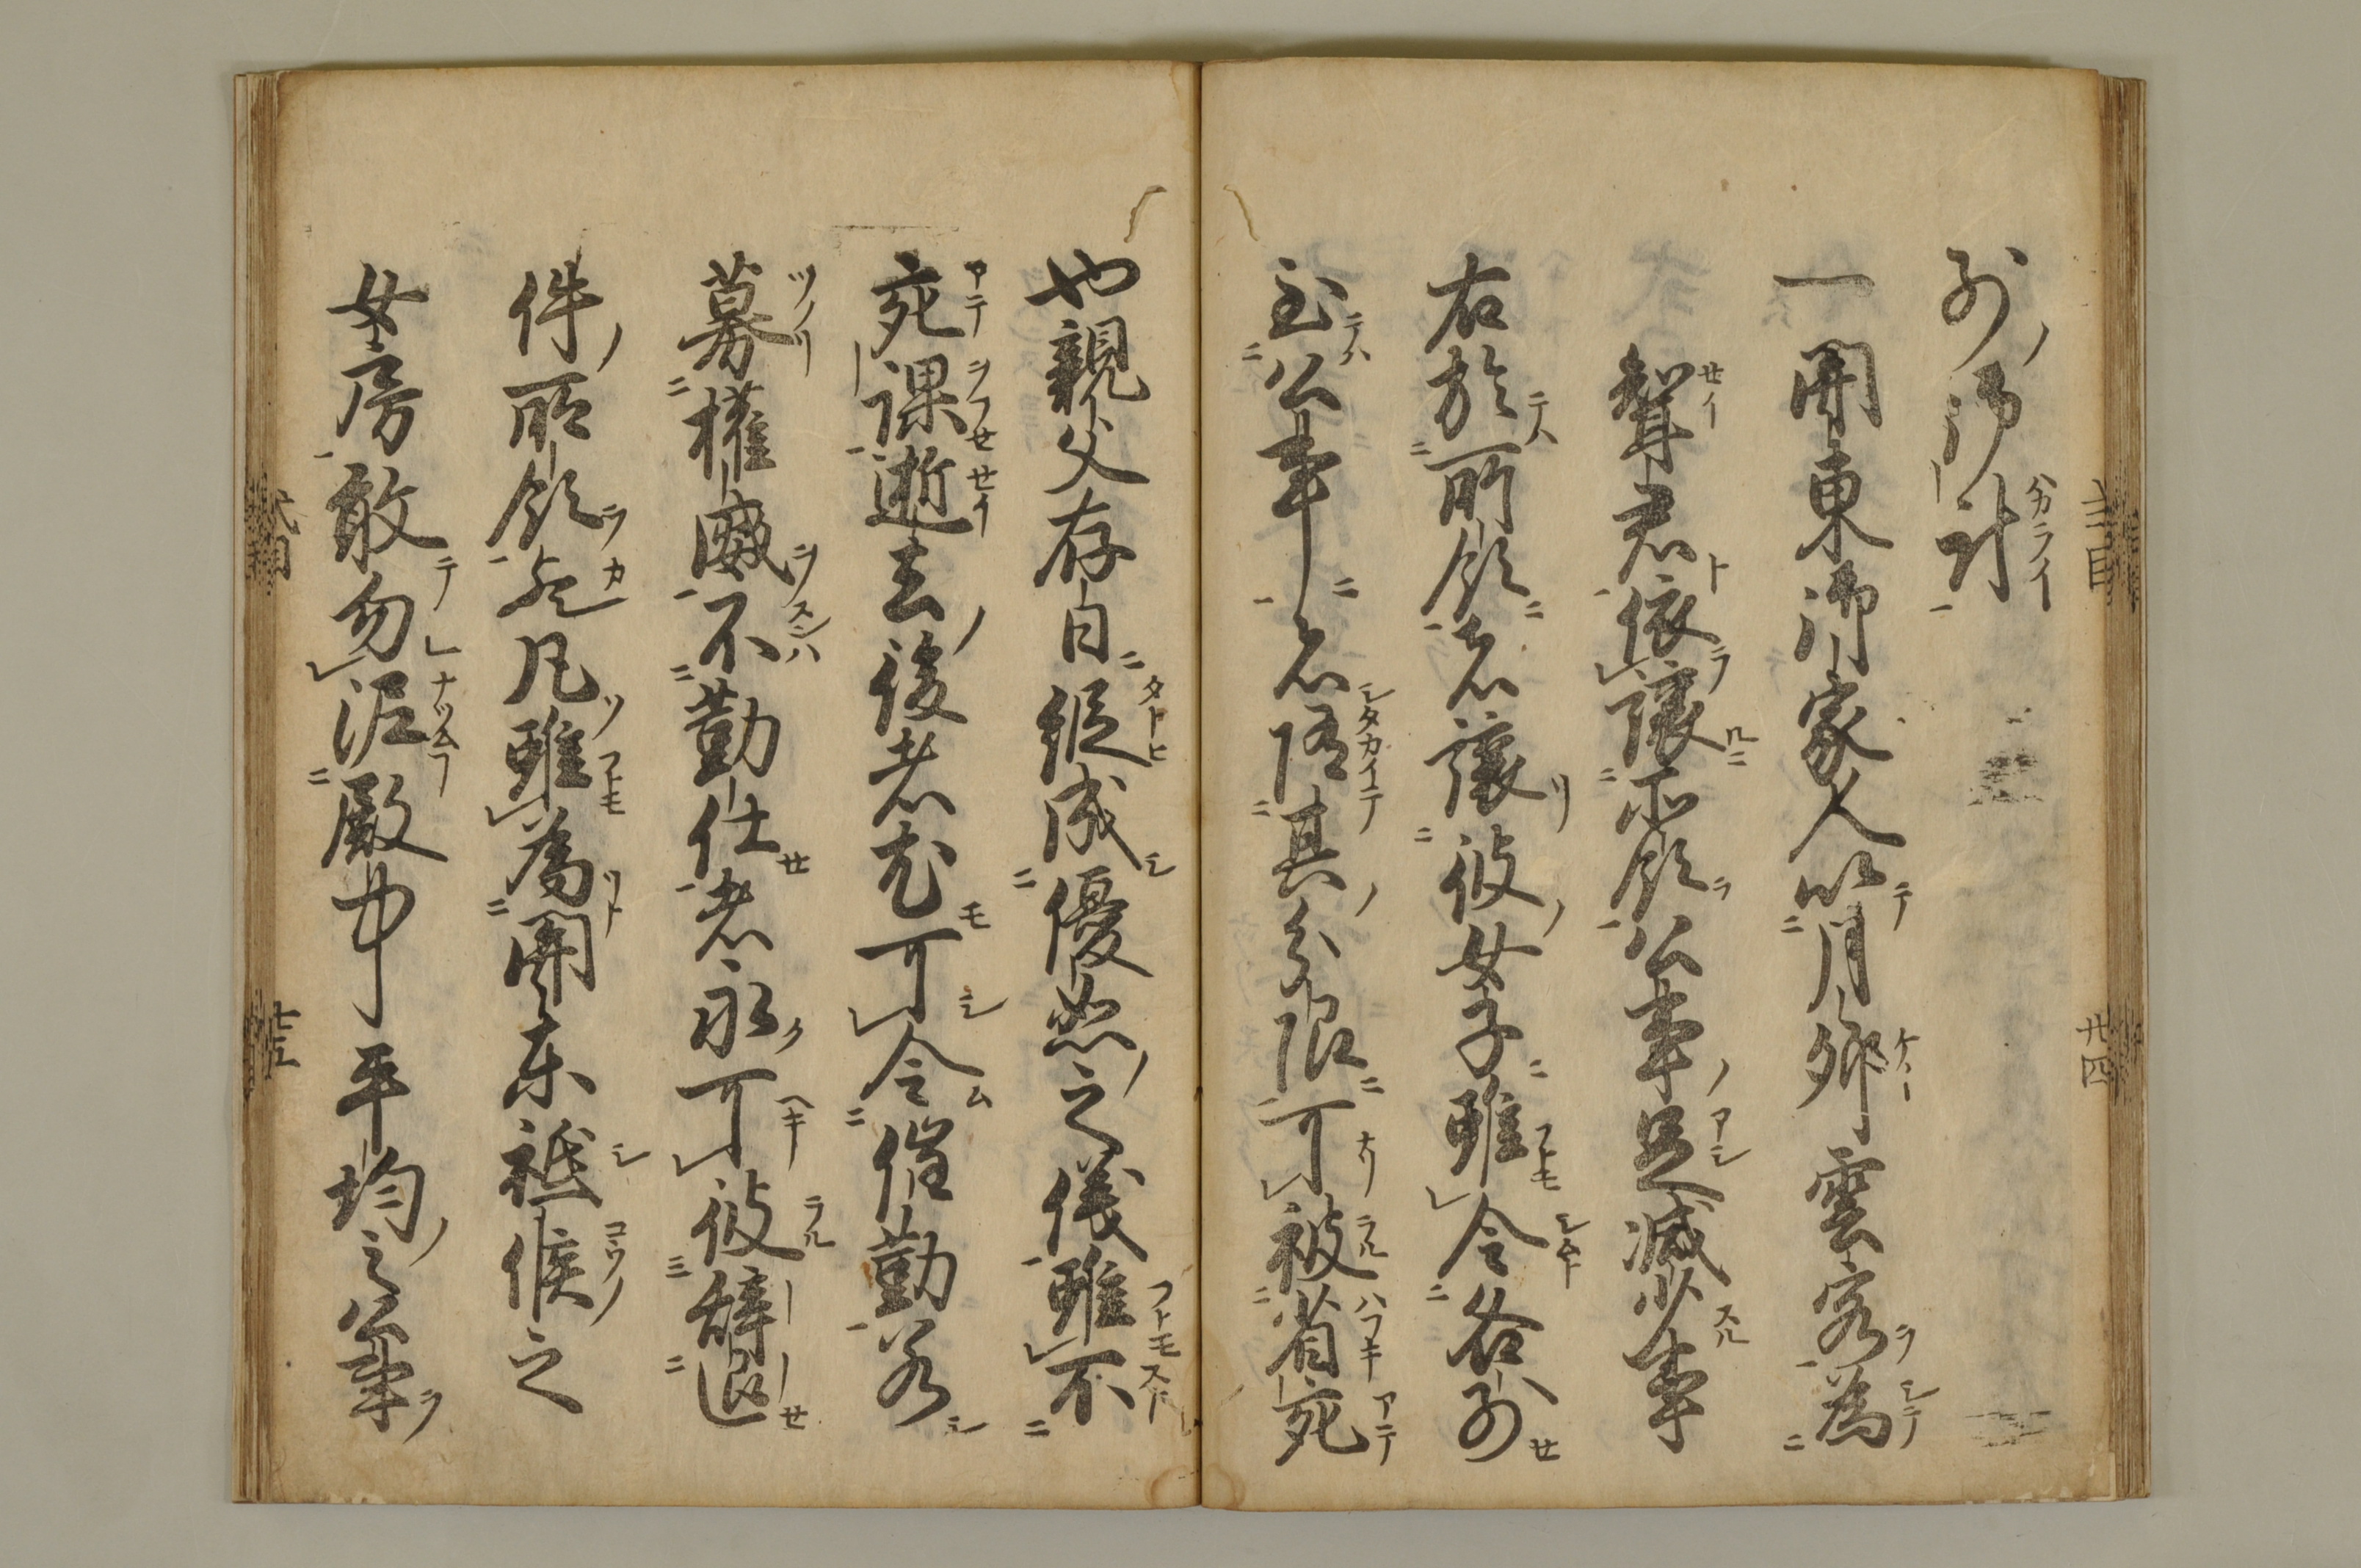 別御計
一関東御家人以月卿雲客為
聟君依譲所領公事足減少事
右於所領者譲彼女子雖令各別
至公事者随其分限可被省宛
也親父存日縦成優恕之儀雖不
宛課逝去後者尤可令催勤若
募権威不勤仕者永可被辞退
件所領也凡雖為関東祗候之
女房敢勿泥殿中平均之公事